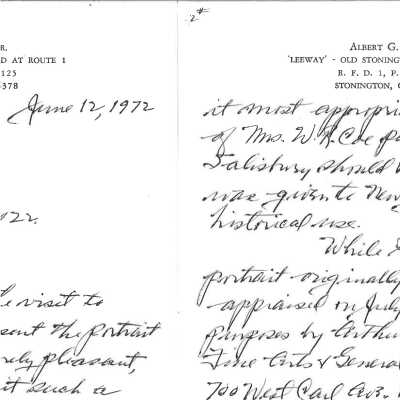 R.
D AT ROUTE 1
125
-378
June 12, 1972
022.
e visit to
sent the portrait
rely pleasant,
it such a
2#
ALBERT G.
'LEEWAY' - OLD STONING
R. F. D. 1, P.
STONINGTON, C
it most appropri
of Mrs. W. R. Coe
Salisbury should
was given to New
historical use.
While I
portrait originally
appraised on July
purposes by Arthu
Fine Arts & General
700 West Carl Ave.